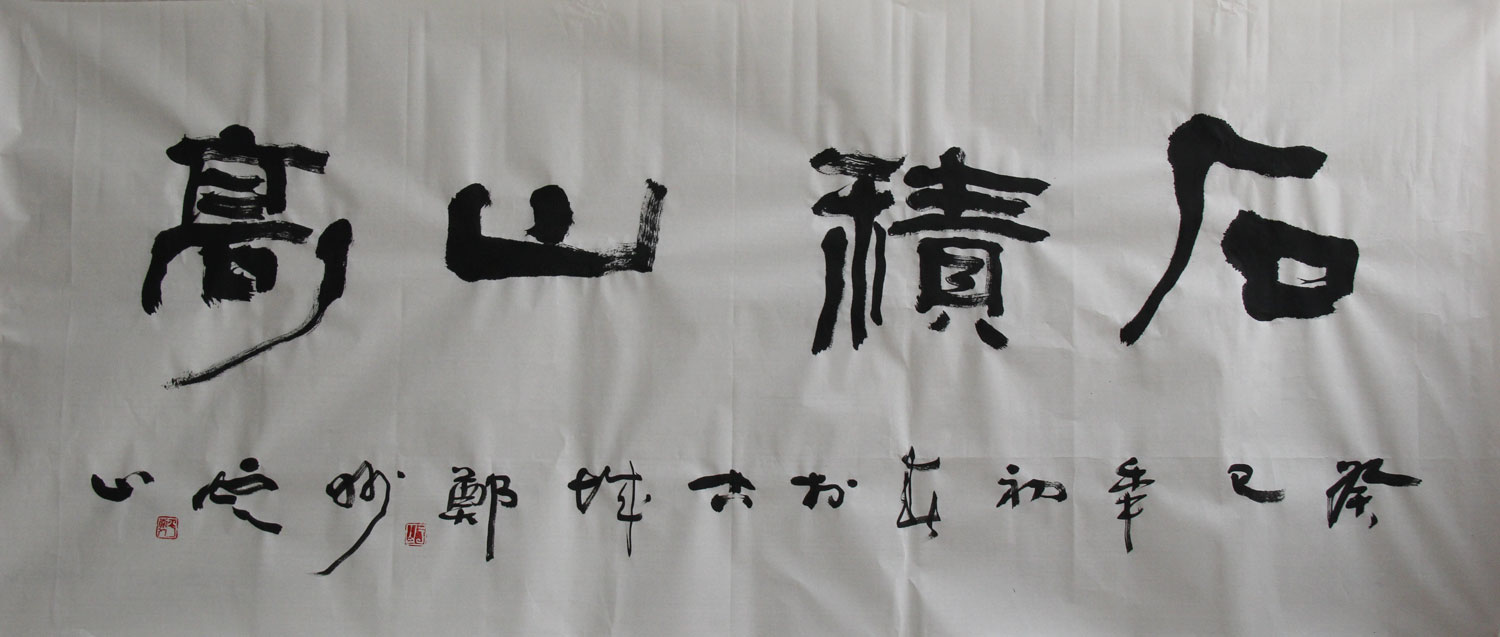 石積山高
癸巳年初春於古城鄭州